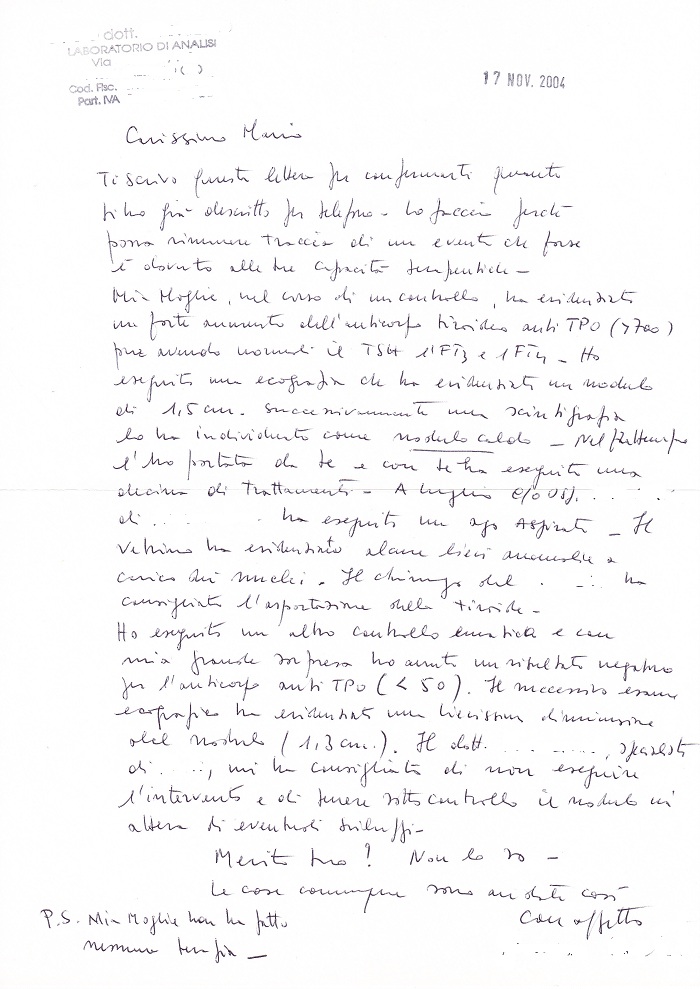 dott.
LABORATORIO DI ANALISI
Via
Cod. Fisc.
Part. IVA
17 NOV. 2004
Carissimo Mario
Ti scrivo questa lettera per confermarti quanto
ti ho già descritto per telefono - Lo faccio perché
possa rimanere traccia di un evento che forse
è dovuto alle tue capacità terapeutiche -
Mia Moglie, nel corso di un controllo, ha evidenziato
un forte aumento dell'anticorpo tiroideo anti TPO (>700)
pur avendo normali il TSH l'FT3 e l'FT4 - Ho
eseguito una ecografia che ha evidenziato un nodulo
di 1,5 cm. Successivamente una scintigrafia
lo ha individuato come nodulo caldo - Nel frattempo
l'ho portata da te e con te ha eseguito una
decina di trattamenti - A luglio
di ha eseguito un ago Aspirato - Il
vetrino ha evidenziato alcune lievi anomalie a
carico dei nuclei. Il chirurgo del ha
consigliato l'asportazione della tiroide -
Ho eseguito un altro controllo ematico e con
mia grande sorpresa ho avuto un risultato negativo
per l'anticorpo anti TPO (< 50). Il successivo esame
ecografico ha evidenziato una lievissima diminuzione
del nodulo (1,3 cm.). Il dott. , specialista
di , mi ha consigliato di non eseguire
l'intervento e di tenere sotto controllo il nodulo in
attesa di eventuali sviluppi -
Merito tuo ? Non lo so -
Le cose comunque sono andate così
Con affetto
P.S. Mia Moglie non ha fatto
nessuna terapia -